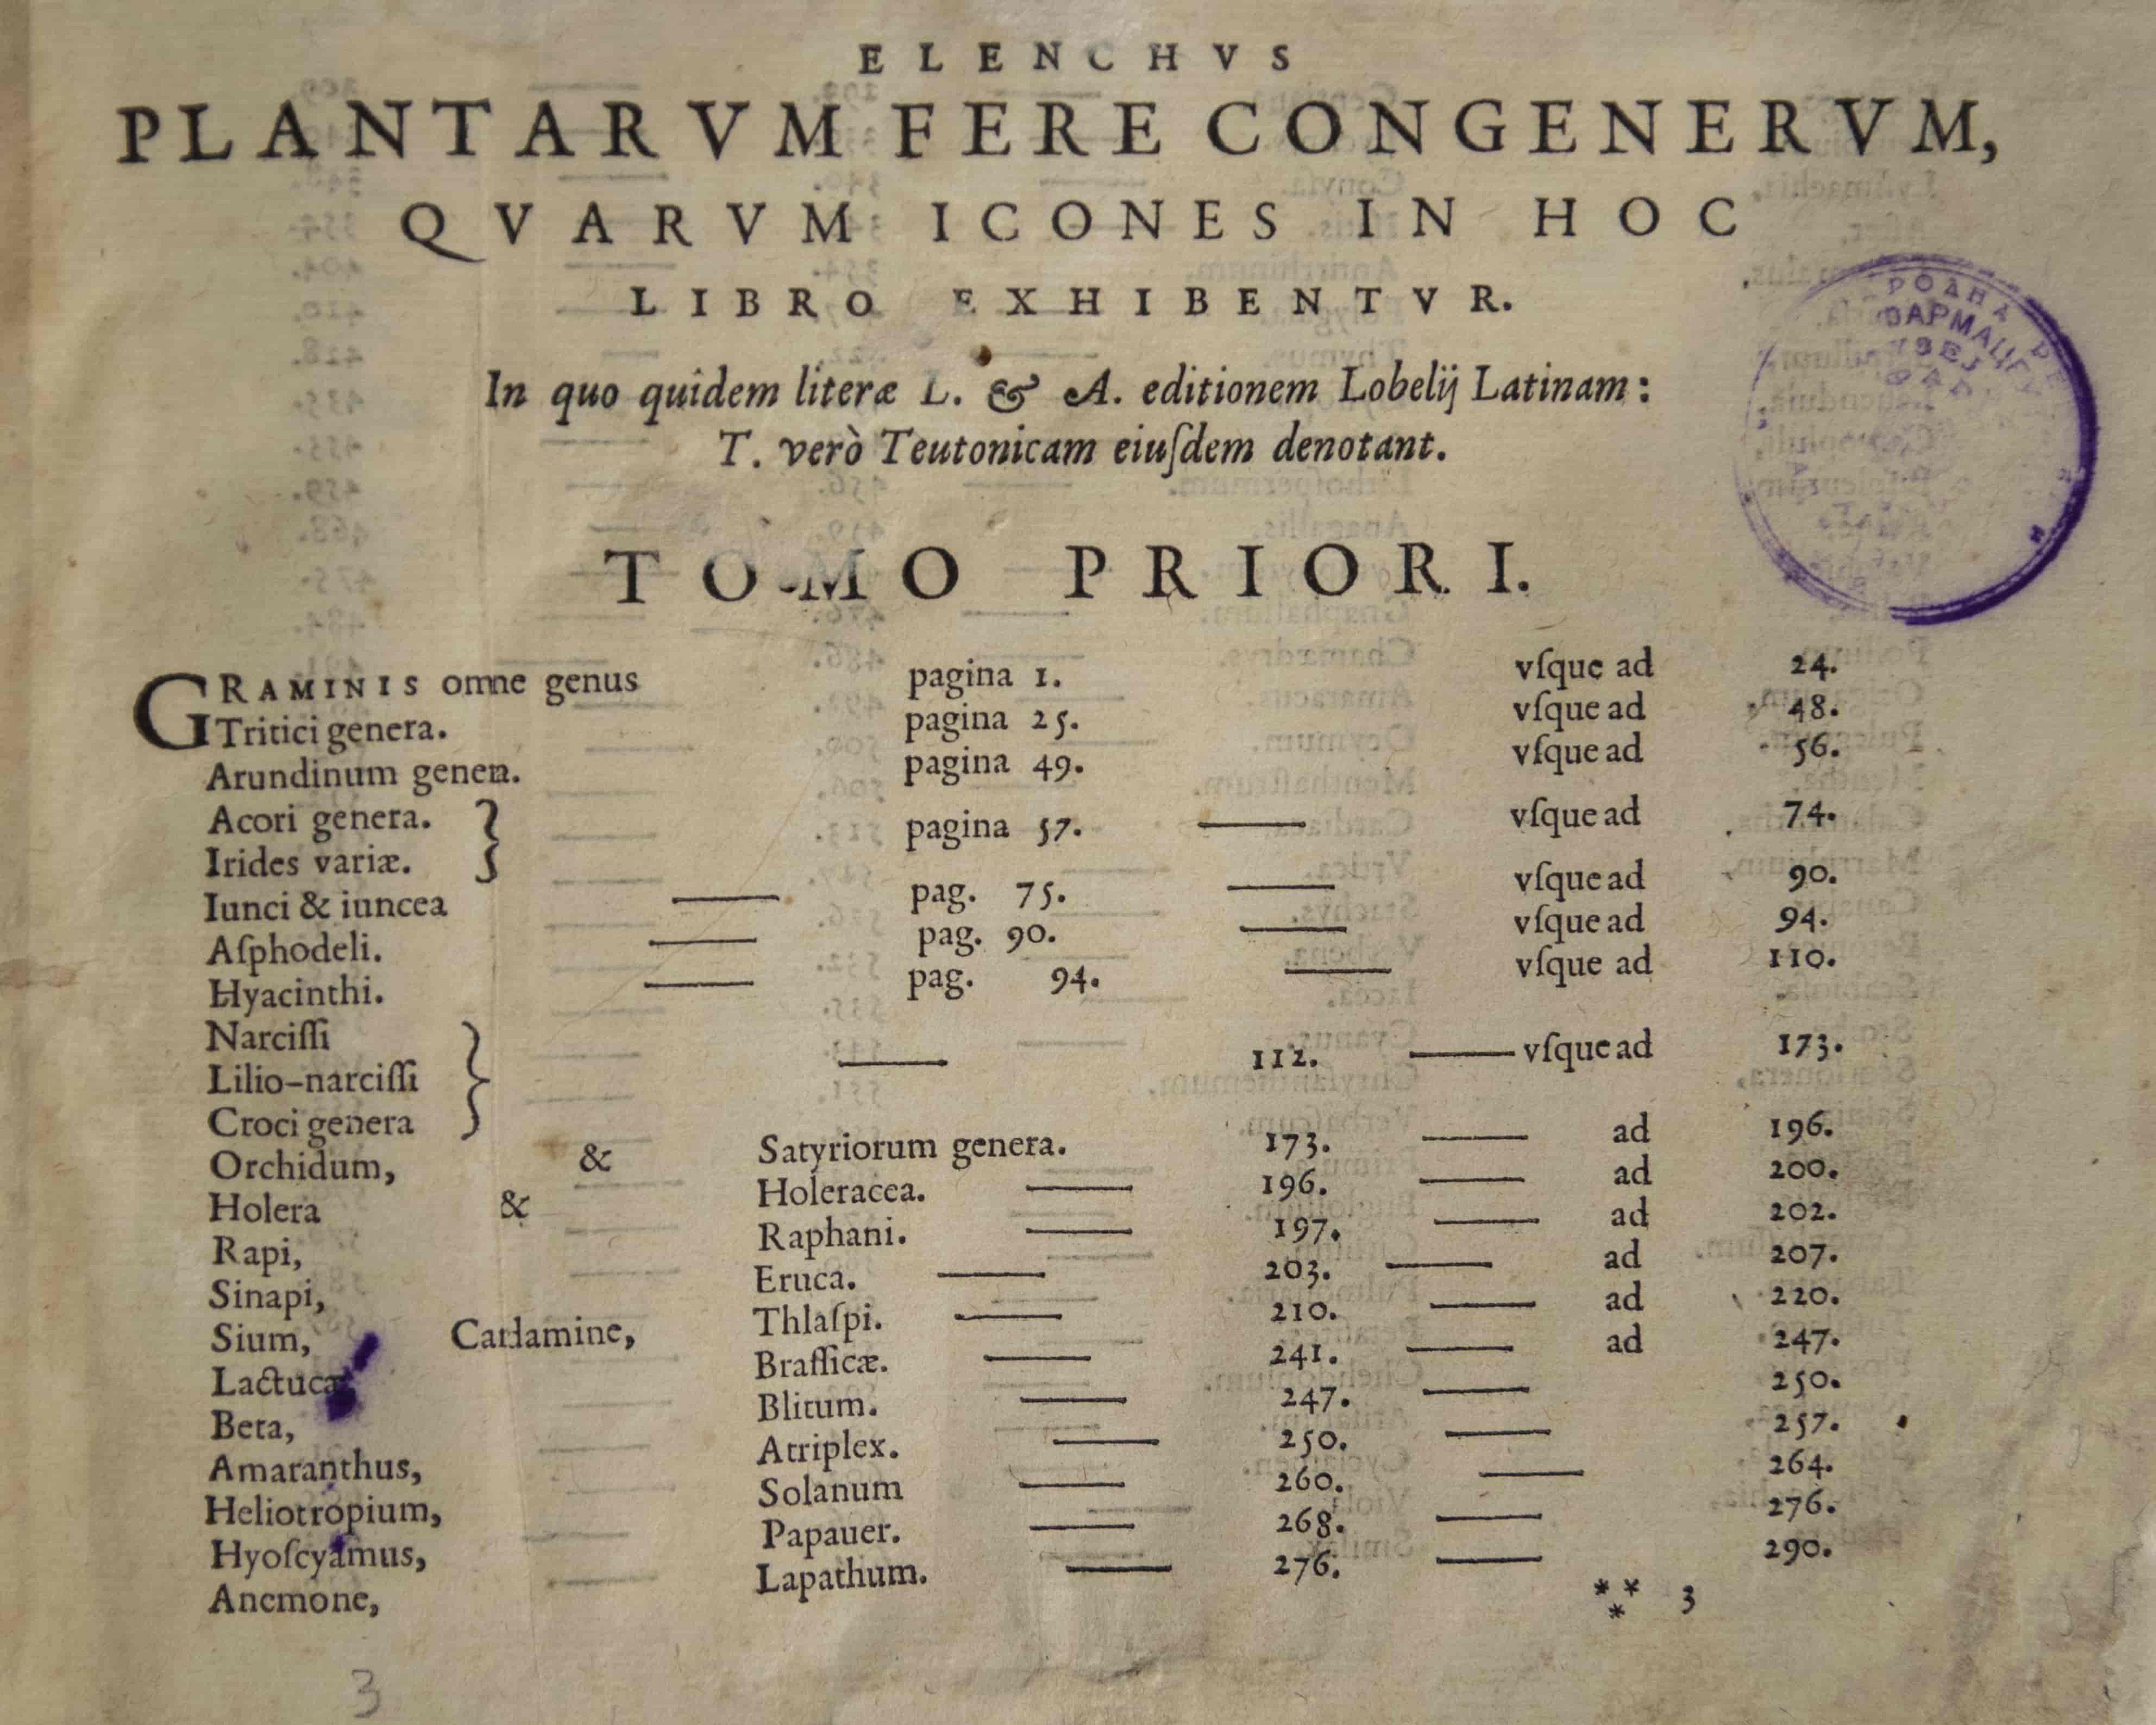 ELENCHVS
PLANTARVM FERE CONGENERVM,
QVARVM ICONES IN HOC
LIBRO EXHIBENTVR.
In quo quidem literæ L. & A. editionem Lobelij Latinam:
T. verò Teutonicam eiuſdem denotant.
TOMO PRIORI.
GRAMINIS omne genus pagina 1. vſque ad 24.
Tritici genera. pagina 25. vſque ad 48.
Arundinum genera. pagina 49. vſque ad 56.
Acori genera. } pagina 57. — vſque ad 74.
Irides variæ.
Iunci & iuncea — pag. 75. — vſque ad 90.
Aſphodeli. — pag. 90. — vſque ad 94.
Hyacinthi. — pag. 94. — vſque ad 110.
Narciſſi
Lilio-narciſſi } — 112. — vſque ad 173.
Croci genera
Orchidum, & Satyriorum genera. 173. — ad 196.
Holera & Holeracea. — 196. — ad 200.
Rapi, Raphani. — 197. — ad 202.
Sinapi, Eruca. — 203. — ad 207.
Sium, Cardamine, Thlaſpi. — 210. — ad 220.
Lactuca Braſſicæ. — 241. — ad 247.
Beta, Blitum. — 247. — 250.
Amaranthus, Atriplex. — 250. — 257.
Heliotropium, Solanum — 260. — 264.
Hyoſcyamus, Papauer. — 268. — 276.
Anemone, Lapathum. — 276. — 290.
*** 3
3